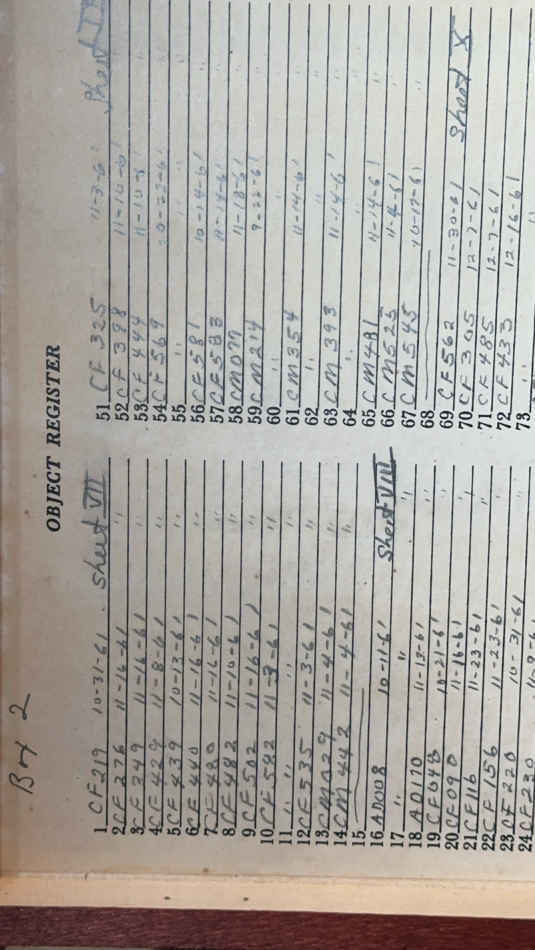 Box 2
OBJECT REGISTER
1 CF219 10-31-61 Sheet VII
2 CF 276 11-16-61 "
3 CF 349 11-16-61 "
4 CF 429 11-8-61 "
5 CF 439 10-13-61 "
6 CF 440 11-16-61 "
7 CF 480 11-16-61 "
8 CF 482 11-10-61 "
9 CF 502 11-16-61 "
10 CF 582 11-9-61 "
11 " " " "
12 CF535 11-3-61 "
13 CM029 11-4-61 "
14 CM 442 11-4-61 "
15
16 AD008 10-11-61 Sheet VIII
17 " " "
18 AD170 11-13-61 "
19 CF048 10-21-61 "
20 CF090 11-16-61 "
21 CF116 11-23-61 "
22 CF 156 11-23-61 "
23 CF 220 10-31-61
24 CF230
51 CF 325 11-3-61 Sheet
52 CF 398 11-16-61 "
53 CF 444 11-10-6 "
54 CF 569 10-22-61 "
55 " " "
56 CF581 10-14-61 "
57 CF583 11-14-61 "
58 CM077 11-18-61 "
59 CM214 9-22-61 "
60 "
61 CM354 11-14-61 "
62 " "
63 CM 393 11-14-61 "
64 "
65 CM481 11-14-61 "
66 CM525 11-4-61
67 CM545 10-17-61 "
68
69 CF562 11-30-61 Sheet X
70 CF 305 12-7-61 "
71 CF 485 12-7-61
72 CF 433 12-16-61
73 " "